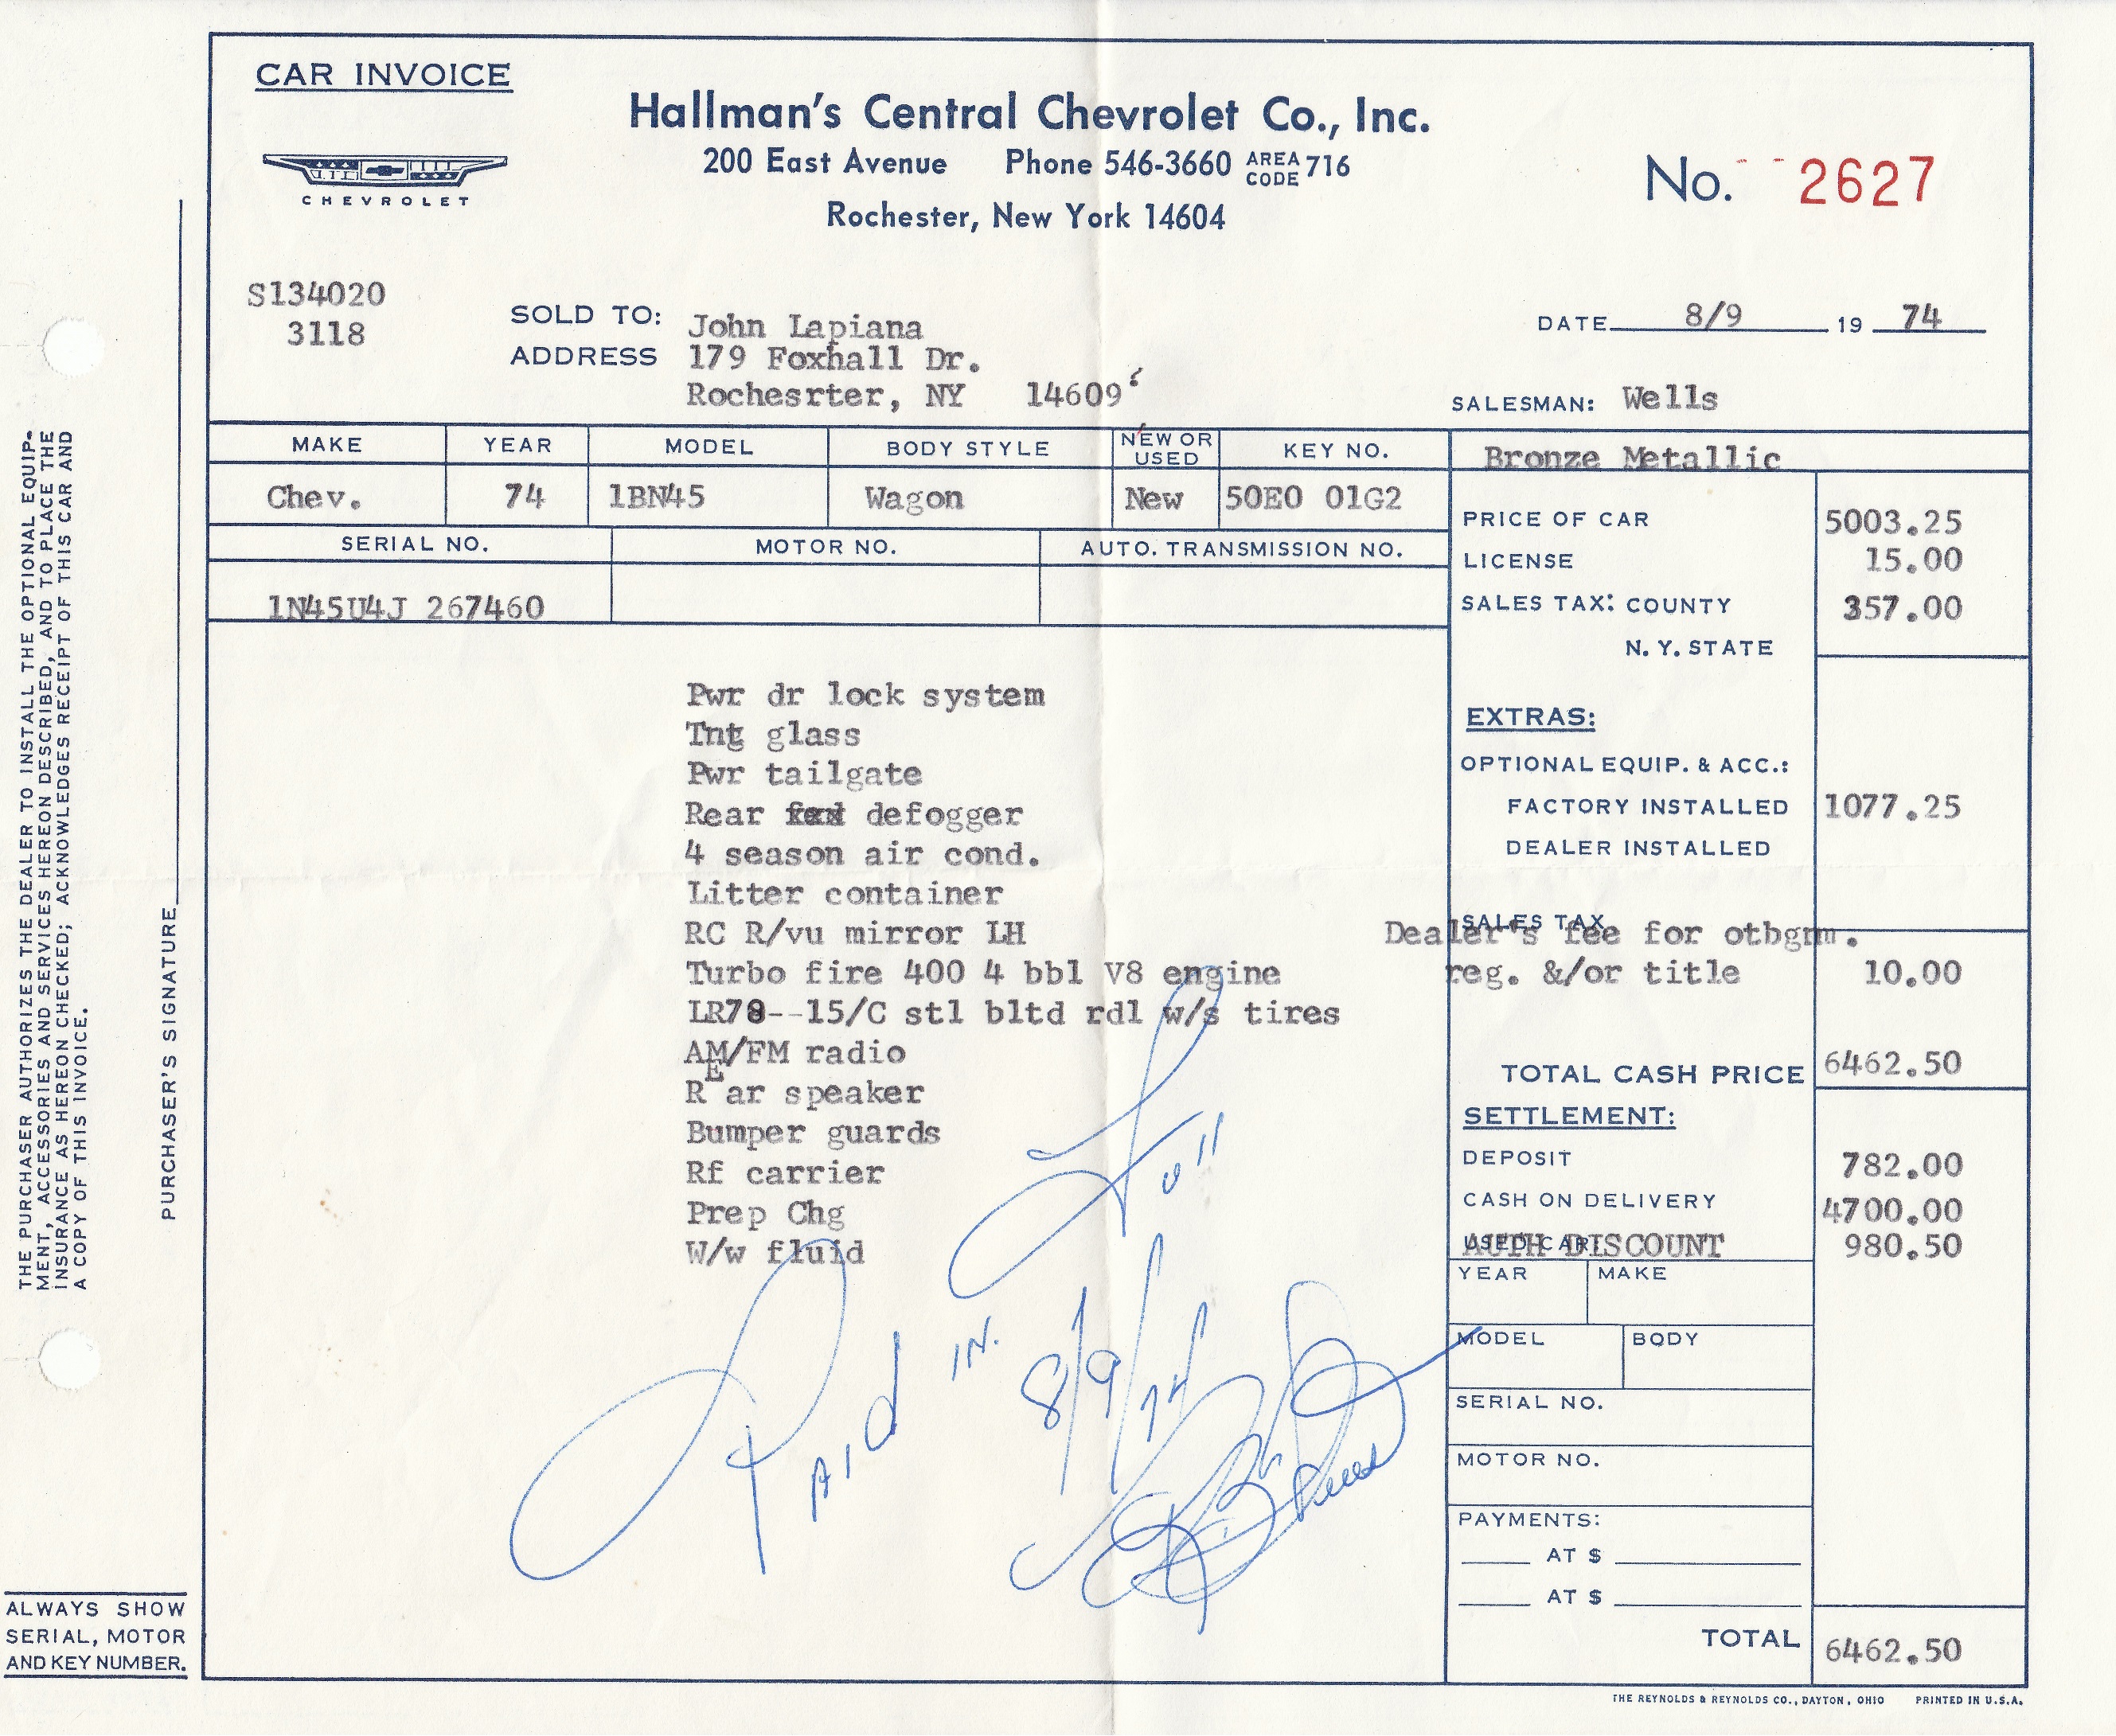 CAR INVOICE
CHEVROLET
Hallman's Central Chevrolet Co., Inc.
200 East Avenue Phone 546-3660 AREA CODE 716
Rochester, New York 14604
No. 2627
S134020
3118
SOLD TO: John Lapiana
ADDRESS 179 Foxhall Dr.
Rochesrter, NY 14609
DATE 8/9 19 74
SALESMAN: Wells
MAKE YEAR MODEL BODY STYLE NEW OR USED KEY NO.
Bronze Metallic
Chev. 74 1BN45 Wagon New 50E0 01G2
SERIAL NO. MOTOR NO. AUTO. TRANSMISSION NO.
1N45U4J 267460
PRICE OF CAR 5003.25
LICENSE 15.00
SALES TAX: COUNTY 357.00
N. Y. STATE
EXTRAS:
OPTIONAL EQUIP. & ACC.:
FACTORY INSTALLED 1077.25
DEALER INSTALLED
SALES TAX
Dealer's fee for otbgnm.
reg. &/or title 10.00
TOTAL CASH PRICE 6462.50
SETTLEMENT:
DEPOSIT 782.00
CASH ON DELIVERY 4700.00
USED CAR:
AUTH DISCOUNT 980.50
YEAR MAKE
MODEL BODY
SERIAL NO.
MOTOR NO.
PAYMENTS:
AT $
AT $
TOTAL 6462.50
Pwr dr lock system
Tnt glass
Pwr tailgate
Rear defogger
4 season air cond.
Litter container
RC R/vu mirror LH
Turbo fire 400 4 bbl V8 engine
LR78--15/C stl bltd rdl w/s tires
AM/FM radio
REar speaker
Bumper guards
Rf carrier
Prep Chg
W/w fluid
Paid IN. Full
8/9/74
THE PURCHASER AUTHORIZES THE DEALER TO INSTALL THE OPTIONAL EQUIP-
MENT, ACCESSORIES AND SERVICES HEREON DESCRIBED, AND TO PLACE THE
INSURANCE AS HEREON CHECKED; ACKNOWLEDGES RECEIPT OF THIS CAR AND
A COPY OF THIS INVOICE.
PURCHASER'S SIGNATURE
ALWAYS SHOW
SERIAL, MOTOR
AND KEY NUMBER.
THE REYNOLDS & REYNOLDS CO., DAYTON, OHIO PRINTED IN U.S.A.